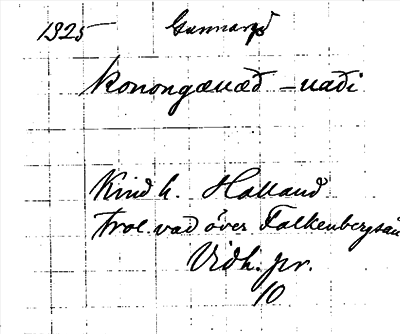 1325 Gunnarp
konongæuæð – uaði
Kind h. Halland
trol. vad över Falkenbergsån
Vidh. pr.
10